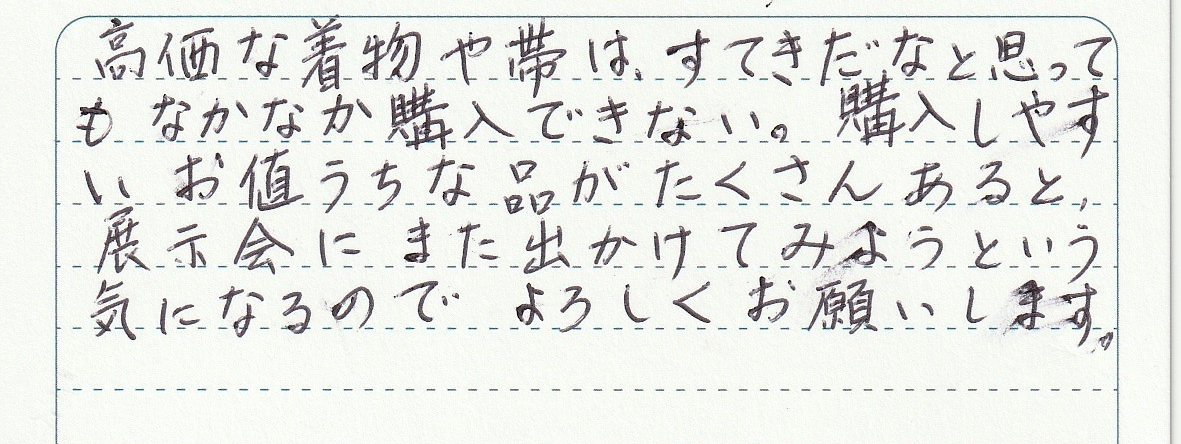 高価な着物や帯は、すてきだなと思って
もなかなか購入できない。購入しやす
いお値うちな品がたくさんあると、
展示会にまた出かけてみようという
気になるのでよろしくお願いします。